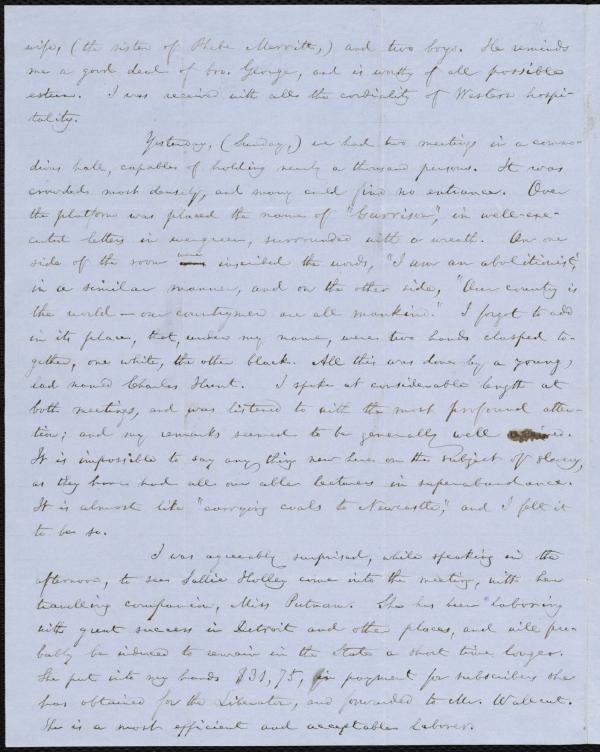 wife, (the sister of Phebe Merritt,) and two boys. He reminds
me a good deal of bro. George, and is worthy of all possible
esteem. I was received with all the cordiality of Western hospi-
tality.
Yesterday, (Sunday,) we had two meetings in a commo-
dious hall, capable of holding nearly a thousand persons. It was
crowded most densely, and many could find no entrance. Over
the platform was placed the name of "Garrison," in well-exe-
cuted letters in evergreen, surrounded with a wreath. On one
side of the room were inscribed the words, "I am an abolitionist,"
in a similar manner, and on the other side, "Our country is
the world — our countrymen are all mankind." I forgot to add
in its place, that, under my name, were two hands clasped to-
gether, one white, the other black. All this was done by a young
lad named Charles Hunt. I spoke at considerable length at
both meetings, and was listened to with the most profound atten-
tion; and my remarks seemed to be generally well
It is impossible to say any thing new here on the subject of slavery,
as they have had all our able lecturers in superabundance.
It is almost like "carrying coals to Newcastle," and I felt it
to be so.
I was agreeably surprised, while speaking in the
afternoon, to see Sallie Holley come into the meeting, with her
travelling companion, Miss Putnam. She has been laboring
with great success in Detroit and other places, and will pro-
bably be induced to remain in the State a short time longer.
She put into my hands $31,75, in payment for subscribers she
has obtained for the Liberator, and forwarded to Mr. Wallcut.
She is a most efficient and acceptable laborer.